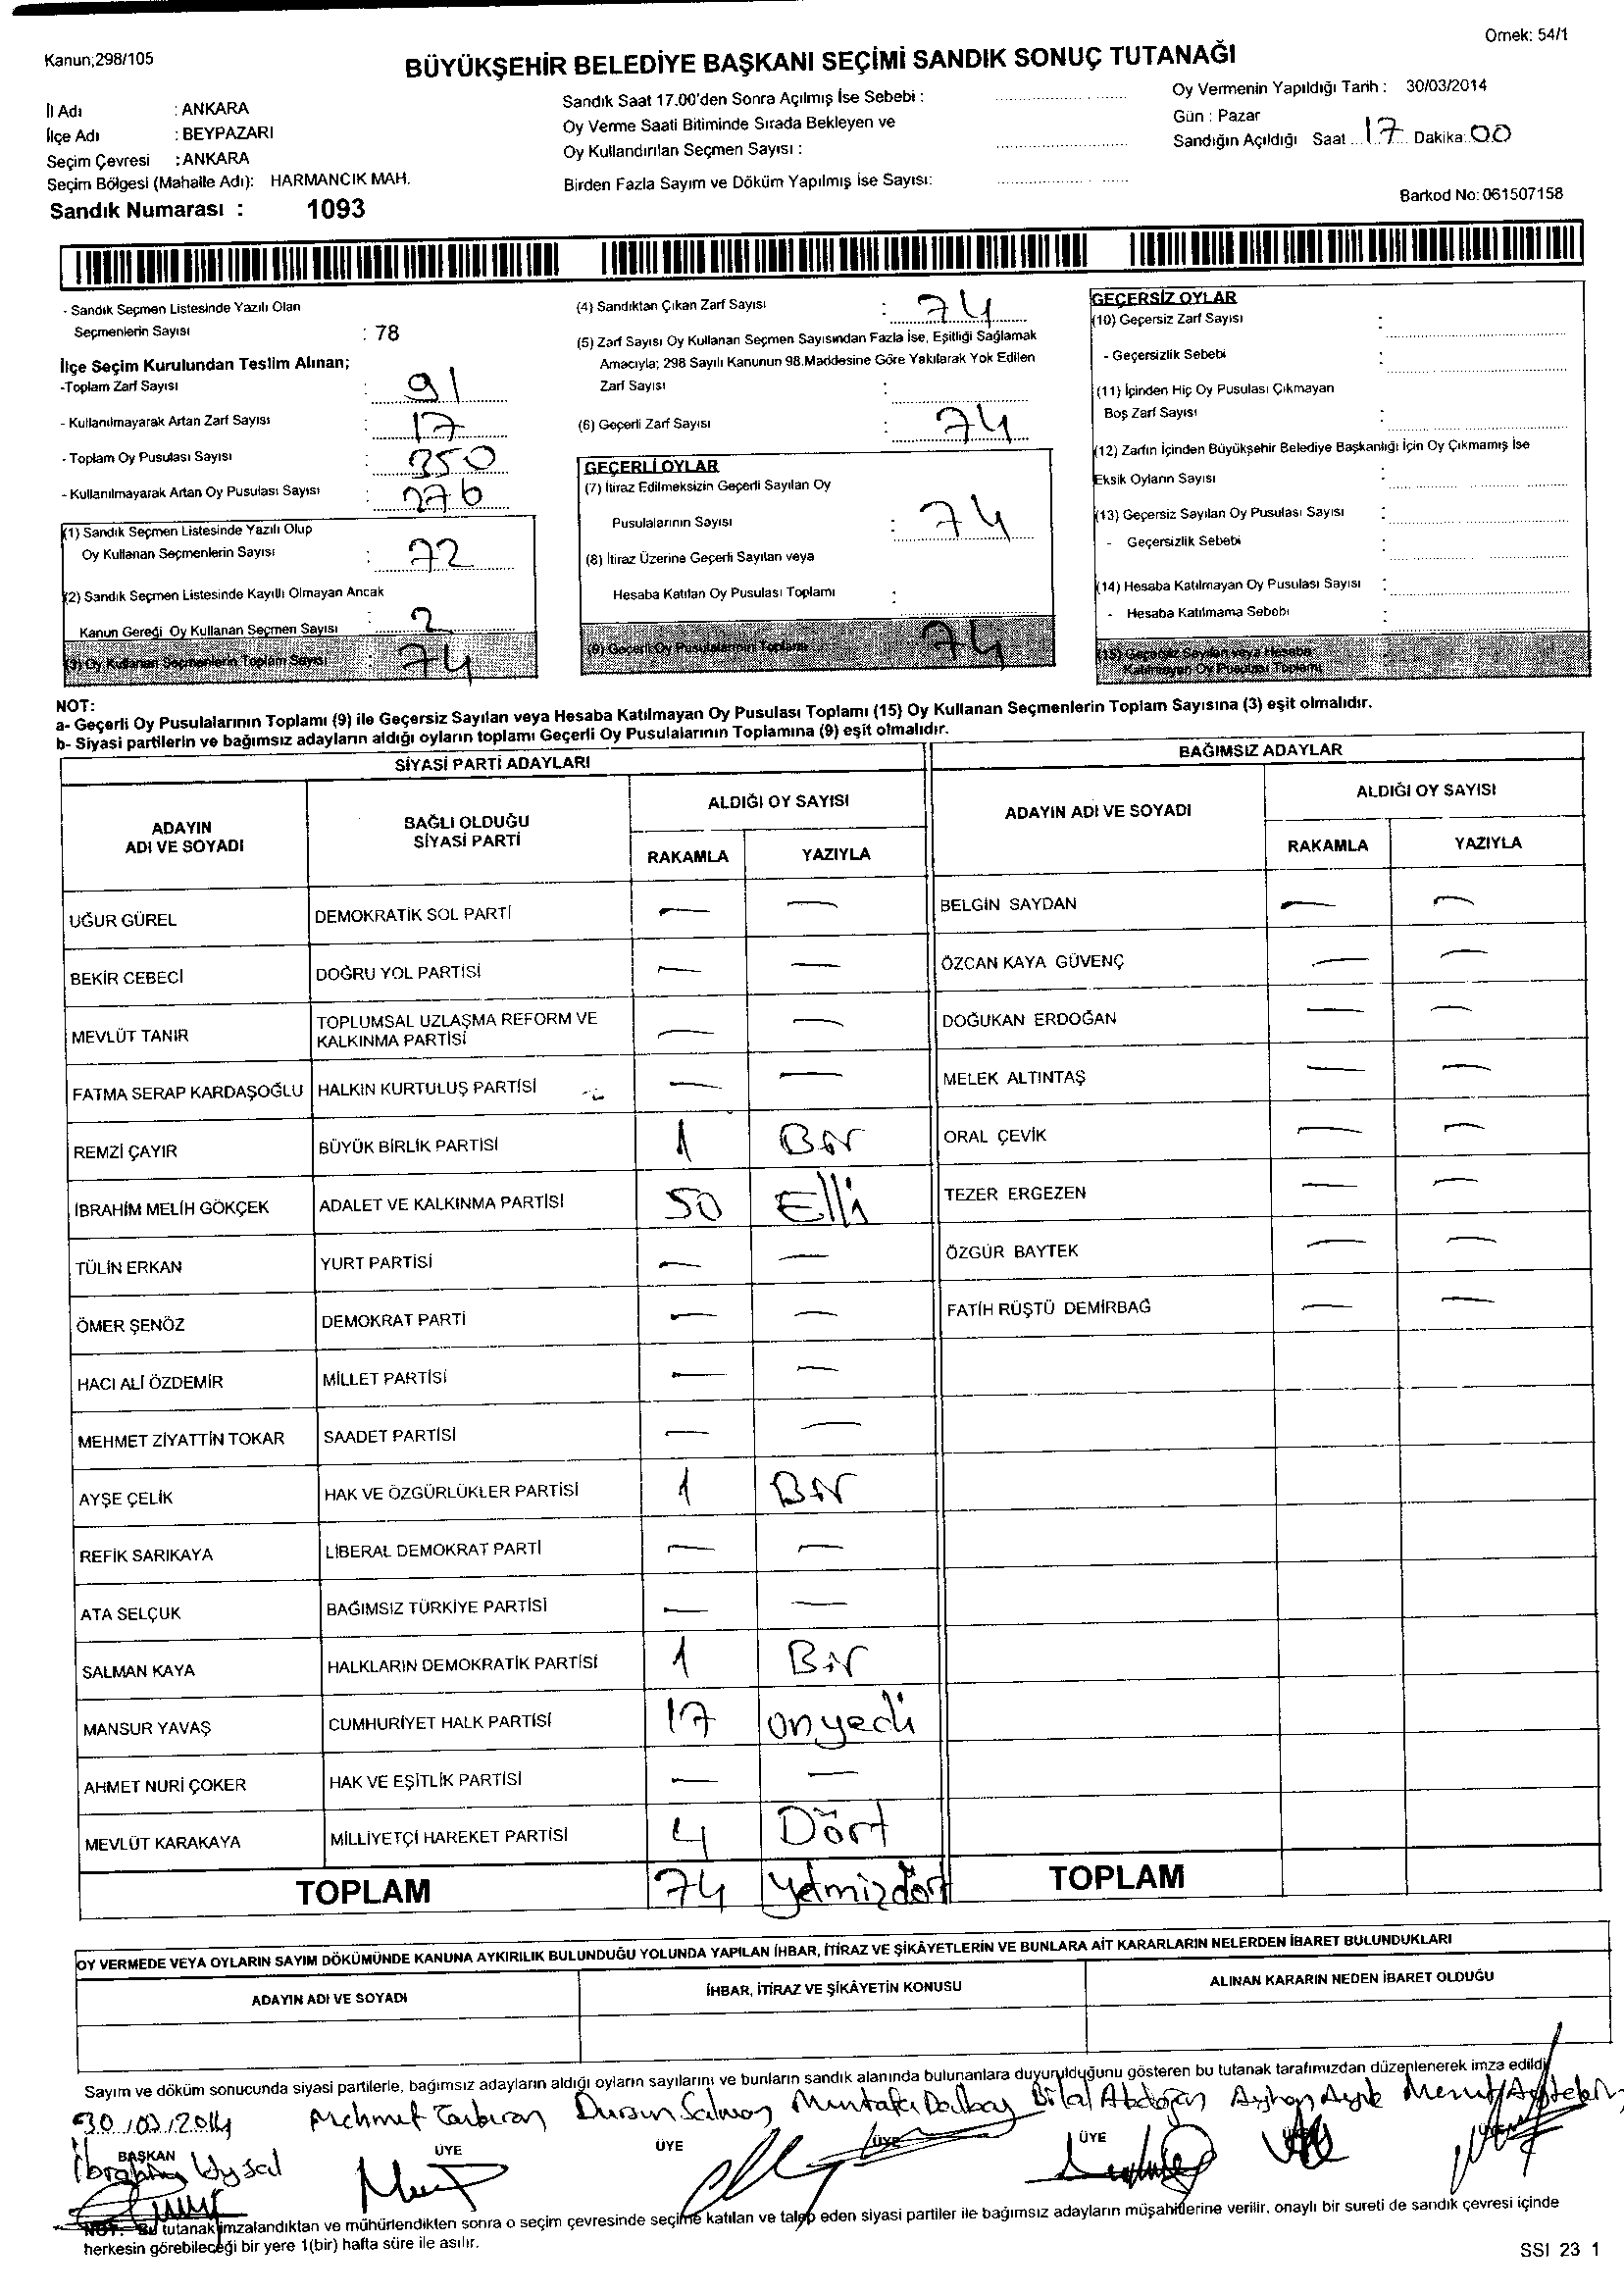 Kanun;298/105
Örnek: 54/1
BÜYÜKŞEHİR BELEDİYE BAŞKANI SEÇİMİ SANDIK SONUÇ TUTANAĞI
İl Adı : ANKARA
İlçe Adı : BEYPAZARI
Seçim Çevresi : ANKARA
Seçim Bölgesi (Mahalle Adı): HARMANCIK MAH.
Sandık Numarası : 1093
Sandık Saat 17.00'den Sonra Açılmış İse Sebebi :
Oy Verme Saati Bitiminde Sırada Bekleyen ve
Oy Kullandırılan Seçmen Sayısı :
Birden Fazla Sayım ve Döküm Yapılmış İse Sayısı:
Oy Vermenin Yapıldığı Tarih : 30/03/2014
Gün : Pazar
Sandığın Açıldığı Saat 17 Dakika: 00
Barkod No: 061507158
- Sandık Seçmen Listesinde Yazılı Olan
Seçmenlerin Sayısı : 78
İlçe Seçim Kurulundan Teslim Alınan;
-Toplam Zarf Sayısı : 91
- Kullanılmayarak Artan Zarf Sayısı : 17
- Toplam Oy Pusulası Sayısı : 350
- Kullanılmayarak Artan Oy Pusulası Sayısı : 276
(1) Sandık Seçmen Listesinde Yazılı Olup
Oy Kullanan Seçmenlerin Sayısı : 72
(2) Sandık Seçmen Listesinde Kayıtlı Olmayan Ancak
Kanun Gereği Oy Kullanan Seçmen Sayısı : 2
(3) Oy Kullanan Seçmenlerin Toplam Sayısı : 74
(4) Sandıktan Çıkan Zarf Sayısı : 74
(5) Zarf Sayısı Oy Kullanan Seçmen Sayısından Fazla İse, Eşitliği Sağlamak
Amacıyla; 298 Sayılı Kanunun 98.Maddesine Göre Yakılarak Yok Edilen
Zarf Sayısı :
(6) Geçerli Zarf Sayısı : 74
GEÇERLİ OYLAR
(7) İtiraz Edilmeksizin Geçerli Sayılan Oy
Pusulalarının Sayısı : 74
(8) İtiraz Üzerine Geçerli Sayılan veya
Hesaba Katılan Oy Pusulası Toplamı :
(9) Geçerli Oy Pusulalarının Toplamı : 74
GEÇERSİZ OYLAR
(10) Geçersiz Zarf Sayısı :
- Geçersizlik Sebebi :
(11) İçinden Hiç Oy Pusulası Çıkmayan
Boş Zarf Sayısı :
(12) Zarfın İçinden Büyükşehir Belediye Başkanlığı İçin Oy Çıkmamış İse
Eksik Oyların Sayısı :
(13) Geçersiz Sayılan Oy Pusulası Sayısı :
- Geçersizlik Sebebi :
(14) Hesaba Katılmayan Oy Pusulası Sayısı :
- Hesaba Katılmama Sebebi :
(15) Geçersiz Sayılan veya Hesaba
Katılmayan Oy Pusulası Toplamı
NOT:
a- Geçerli Oy Pusulalarının Toplamı (9) ile Geçersiz Sayılan veya Hesaba Katılmayan Oy Pusulası Toplamı (15) Oy Kullanan Seçmenlerin Toplam Sayısına (3) eşit olmalıdır.
b- Siyasi partilerin ve bağımsız adayların aldığı oyların toplamı Geçerli Oy Pusulalarının Toplamına (9) eşit olmalıdır.
SİYASİ PARTİ ADAYLARI
ADAYIN ADI VE SOYADI
BAĞLI OLDUĞU SİYASİ PARTİ
ALDIĞI OY SAYISI
RAKAMLA YAZIYLA
UĞUR GÜREL DEMOKRATİK SOL PARTİ — —
BEKİR CEBECİ DOĞRU YOL PARTİSİ — —
MEVLÜT TANIR TOPLUMSAL UZLAŞMA REFORM VE KALKINMA PARTİSİ — —
FATMA SERAP KARDAŞOĞLU HALKIN KURTULUŞ PARTİSİ — —
REMZİ ÇAYIR BÜYÜK BİRLİK PARTİSİ 1 Bir
İBRAHİM MELİH GÖKÇEK ADALET VE KALKINMA PARTİSİ 50 Elli
TÜLİN ERKAN YURT PARTİSİ — —
ÖMER ŞENÖZ DEMOKRAT PARTİ — —
HACI ALİ ÖZDEMİR MİLLET PARTİSİ — —
MEHMET ZİYATTİN TOKAR SAADET PARTİSİ — —
AYŞE ÇELİK HAK VE ÖZGÜRLÜKLER PARTİSİ 1 Bir
REFİK SARIKAYA LİBERAL DEMOKRAT PARTİ — —
ATA SELÇUK BAĞIMSIZ TÜRKİYE PARTİSİ — —
SALMAN KAYA HALKLARIN DEMOKRATİK PARTİSİ 1 Bir
MANSUR YAVAŞ CUMHURİYET HALK PARTİSİ 17 onyedi
AHMET NURİ ÇOKER HAK VE EŞİTLİK PARTİSİ — —
MEVLÜT KARAKAYA MİLLİYETÇİ HAREKET PARTİSİ 4 Dört
TOPLAM 74 Yetmizdört
BAĞIMSIZ ADAYLAR
ADAYIN ADI VE SOYADI
ALDIĞI OY SAYISI
RAKAMLA YAZIYLA
BELGİN SAYDAN — —
ÖZCAN KAYA GÜVENÇ — —
DOĞUKAN ERDOĞAN — —
MELEK ALTINTAŞ — —
ORAL ÇEVİK — —
TEZER ERGEZEN — —
ÖZGÜR BAYTEK — —
FATİH RÜŞTÜ DEMİRBAĞ — —
TOPLAM
OY VERMEDE VEYA OYLARIN SAYIM DÖKÜMÜNDE KANUNA AYKIRILIK BULUNDUĞU YOLUNDA YAPILAN İHBAR, İTİRAZ VE ŞİKÂYETLERİN VE BUNLARA AİT KARARLARIN NELERDEN İBARET BULUNDUKLARI
ADAYIN ADI VE SOYADI
İHBAR, İTİRAZ VE ŞİKÂYETİN KONUSU
ALINAN KARARIN NEDEN İBARET OLDUĞU
Sayım ve döküm sonucunda siyasi partilerle, bağımsız adayların aldığı oyların sayılarını ve bunların sandık alanında bulunanlara duyurulduğunu gösteren bu tutanak tarafımızdan düzenlenerek imza edildi
30/03/2014 Mehmet Dursun Mustafa Bilal
BAŞKAN ÜYE ÜYE ÜYE ÜYE
İbrahim Uysal
NOT: Bu tutanak imzalandıktan ve mühürlendikten sonra o seçim çevresinde seçime katılan ve talep eden siyasi partiler ile bağımsız adayların müşahitlerine verilir, onaylı bir sureti de sandık çevresi içinde
herkesin görebileceği bir yere 1(bir) hafta süre ile asılır.
SSI 23 1